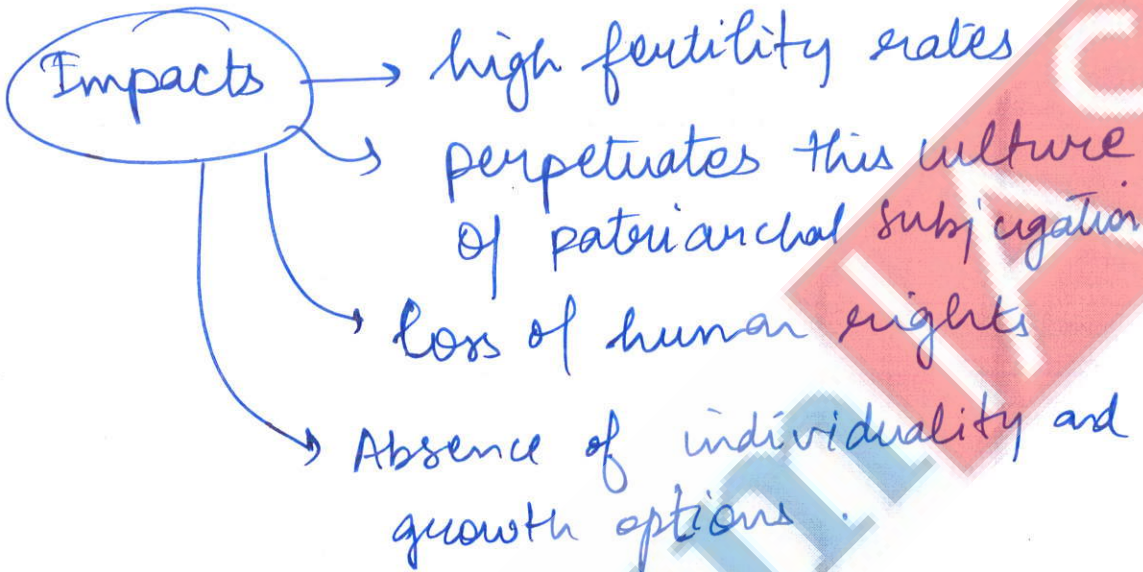 Impacts → high fertility rates
→ perpetuates this culture
of patriarchal subjugation
→ loss of human rights
→ Absence of individuality and
growth options.